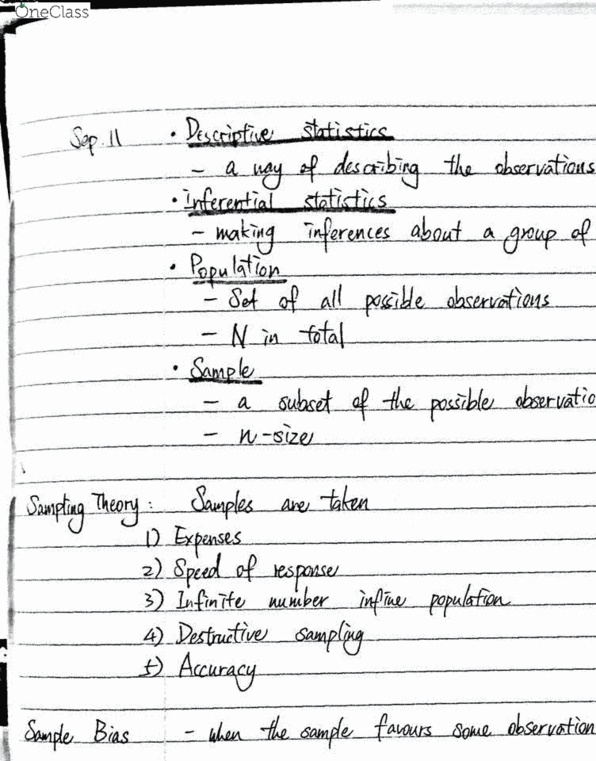 OneClass
Sep. 11 • Descriptive statistics
- a way of describing the observations
• Inferential statistics
- making inferences about a group of
• Population
- Set of all possible observations
- N in total
• Sample
- a subset of the possible observatio
- n-size
Sampling Theory: Samples are taken
1) Expenses
2) Speed of response
3) Infinite number population
4) Destructive sampling
5) Accuracy
Sample Bias - when the sample favours some observation